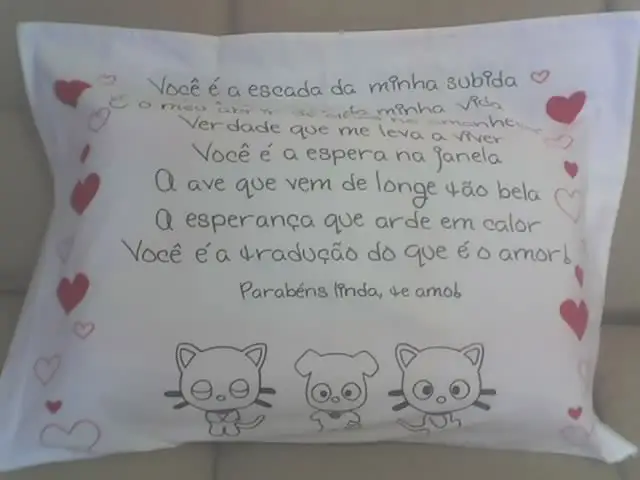 Você é a escada da minha subida
É o meu minha vida
Verdade que me leva a viver
Você é a espera na janela
A ave que vem de longe tão bela
A esperança que arde em calor
Você é a tradução do que é o amor!
Parabéns linda, te amo!